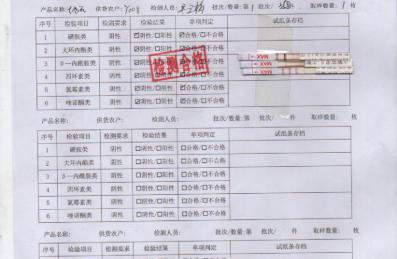 产品名称: 供货农户: 检测人员: 批次/数量:第 1 批次/ 取样数量: 1 枚
序号 检验项目 检测要求 检验结果 单项判定 试纸条存档
1 磺胺类 阴性 ☑阴性/□阳性 ☑合格/□不合格
2 大环内酯类 阴性 ☑阴性/□阳性 ☑合格/□不合格
3 β一内酰胺类 阴性 ☑阴性/□阳性 ☑合格/□不合格
4 四环素类 阴性 ☑阴性/□阳性 ☑合格/□不合格
5 氯霉素类 阴性 ☑阴性/□阳性 ☑合格/□不合格
6 喹诺酮类 阴性 ☑阴性/□阳性 ☑合格/□不合格
检测合格
MAX MAX
产品名称: 供货农户: 检测人员: 批次/数量:第 批次/ 件 取样数量: 枚
序号 检验项目 检测要求 检验结果 单项判定 试纸条存档
1 磺胺类 阴性 □阴性/□阳性 □合格/□不合格
2 大环内酯类 阴性 □阴性/□阳性 □合格/□不合格
3 β一内酰胺类 阴性 □阴性/□阳性 □合格/□不合格
4 四环素类 阴性 □阴性/□阳性 □合格/□不合格
5 氯霉素类 阴性 □阴性/□阳性 □合格/□不合格
6 喹诺酮类 阴性 □阴性/□阳性 □合格/□不合格
产品名称: 供货农户: 检测人员: 批次/数量:第 批次/ 件 取样数量: 枚
序号 检验项目 检测要求 检验结果 单项判定 试纸条存档